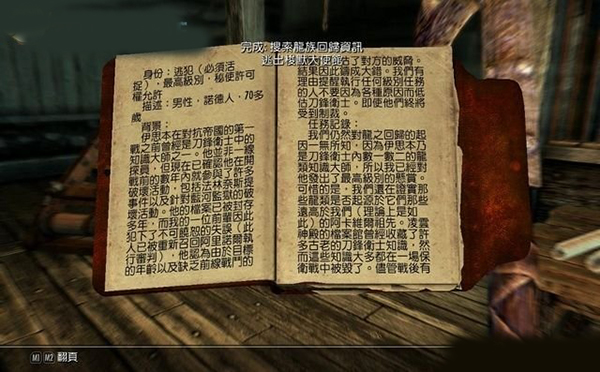 完成: 搜索龍族回歸資訊
逃出梭默大使館
身份：逃犯（必須活
捉），最高級別，秘使許可
權允許
描述：男性，諾德人，70多
歲
背景：
伊思本在對抗帝國的第一
戰之前曾經是刀鋒衛士中的
知識大師之一。他並非一線
探員，但現在已確認他在開
戰前的數年內參與了許多
破壞活動，包括
事件以及針對藍河監獄的破
壞活動。他的檔案已被封存
多年，而我們一位前輩因此
犯下了不可饒恕的失誤（此
人已被重新召回阿里諾爾執
行審判），他認為由於目標
的年齡以及缺乏前線戰鬥的
估了對方的威脅。
結果因此鑄成大錯。我們有
理由提醒執行任何級別任務
的人不要因為各種原因而低
估刀鋒衛士。即使他們終將
受到制裁。
任務記錄：
我們仍然對龍之回歸的起
因一無所知，因為伊思本乃
是刀鋒衛士內數一數二的龍
類知識大師，所以我已經對
他發出了最高級別的懸賞。
可惜的是，我們還在證實那
些龍類是否起源於它們那些
遠高於我們（理論上是如
此）的阿卡維爾祖先。凌雲
神殿的檔案館曾經收藏了許
多古老的刀鋒衛士知識，然
而這些知識大多都在一場保
衛戰中被毀了。儘管戰後有
M1 M2 翻頁